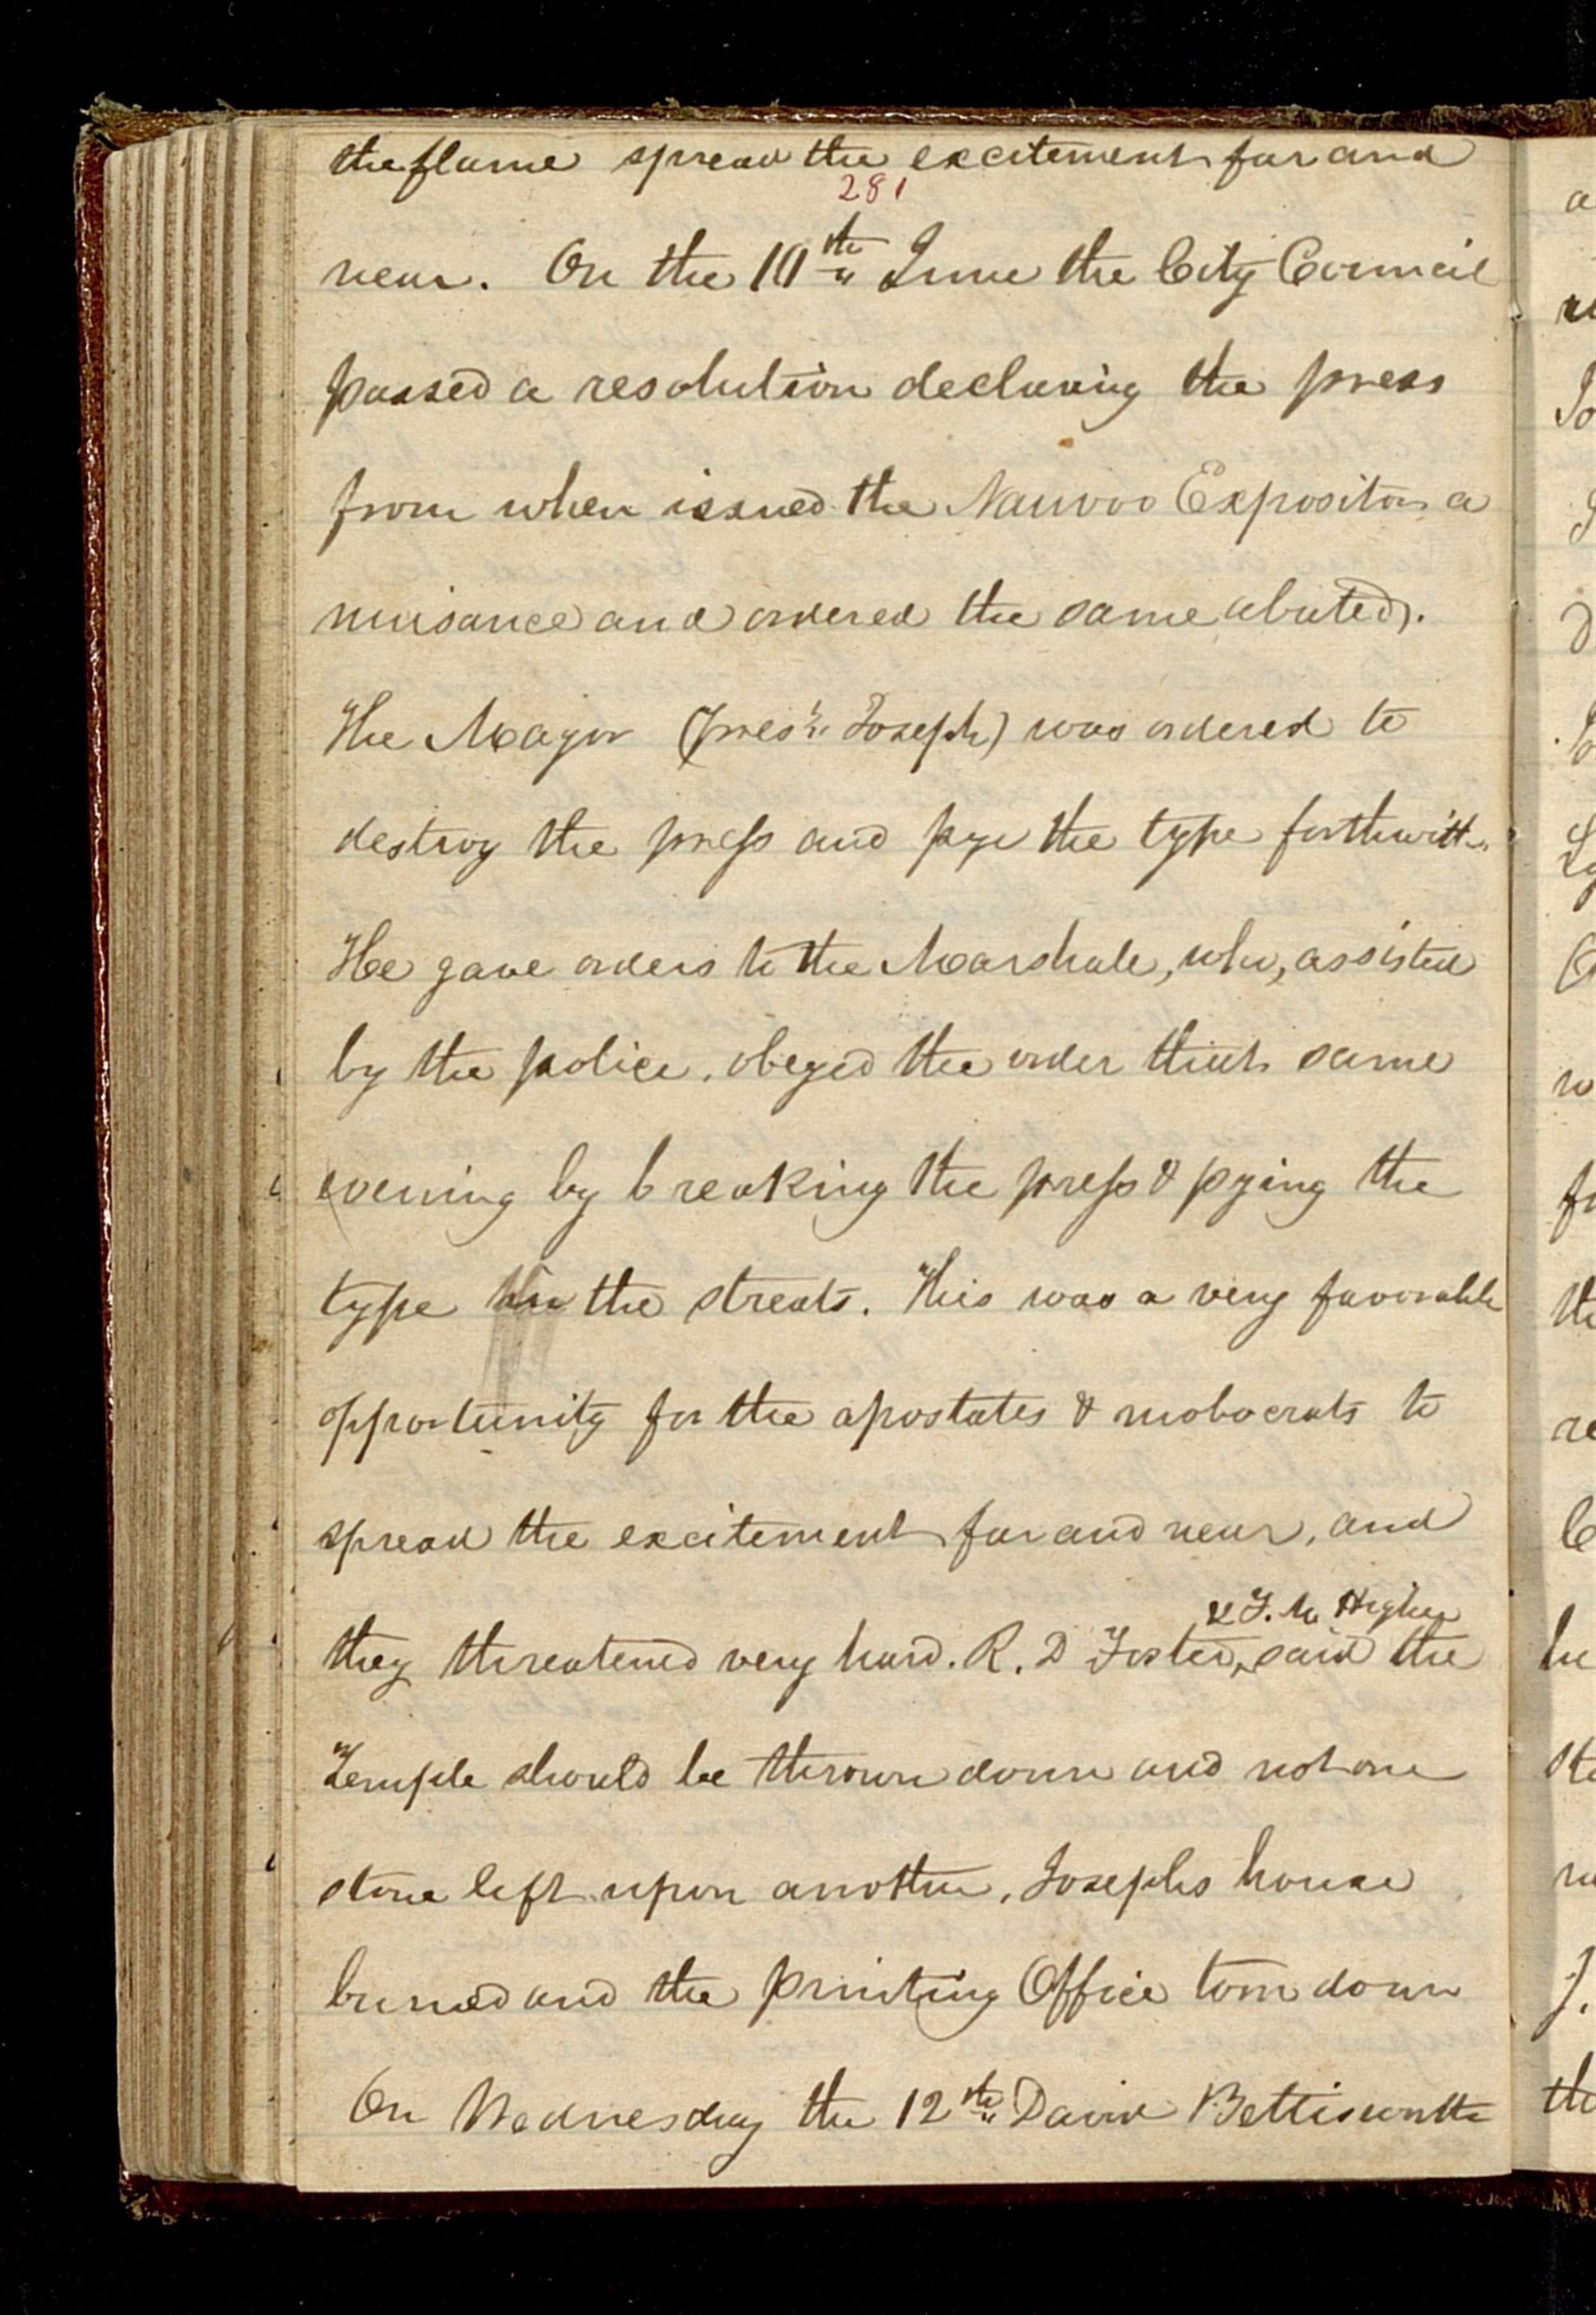 the flame spread the excitement far and
281
near. On the 10th June the City Council
passed a resolution declaring the press
from when issued the Nauvoo Expositor a
nuisance and ordered the same abated.
The Mayor (Pres't Joseph) was ordered to
destroy the press and pye the type forthwith.
He gave orders to the Marshale, who, assisted
by the police, obeyed the order that same
evening by breaking the press & pying the
type in the streets. This was a very favorable
opportunity for the apostates & mobocrats to
spread the excitement far and near, and
& F. M. Higbee
they threatened very hard. R. D Foster, said the
Temple should be thrown down and not one
stone left upon another, Josephs house
burned and the printing Office torn down
On Wednesday the 12th David Bettisworth